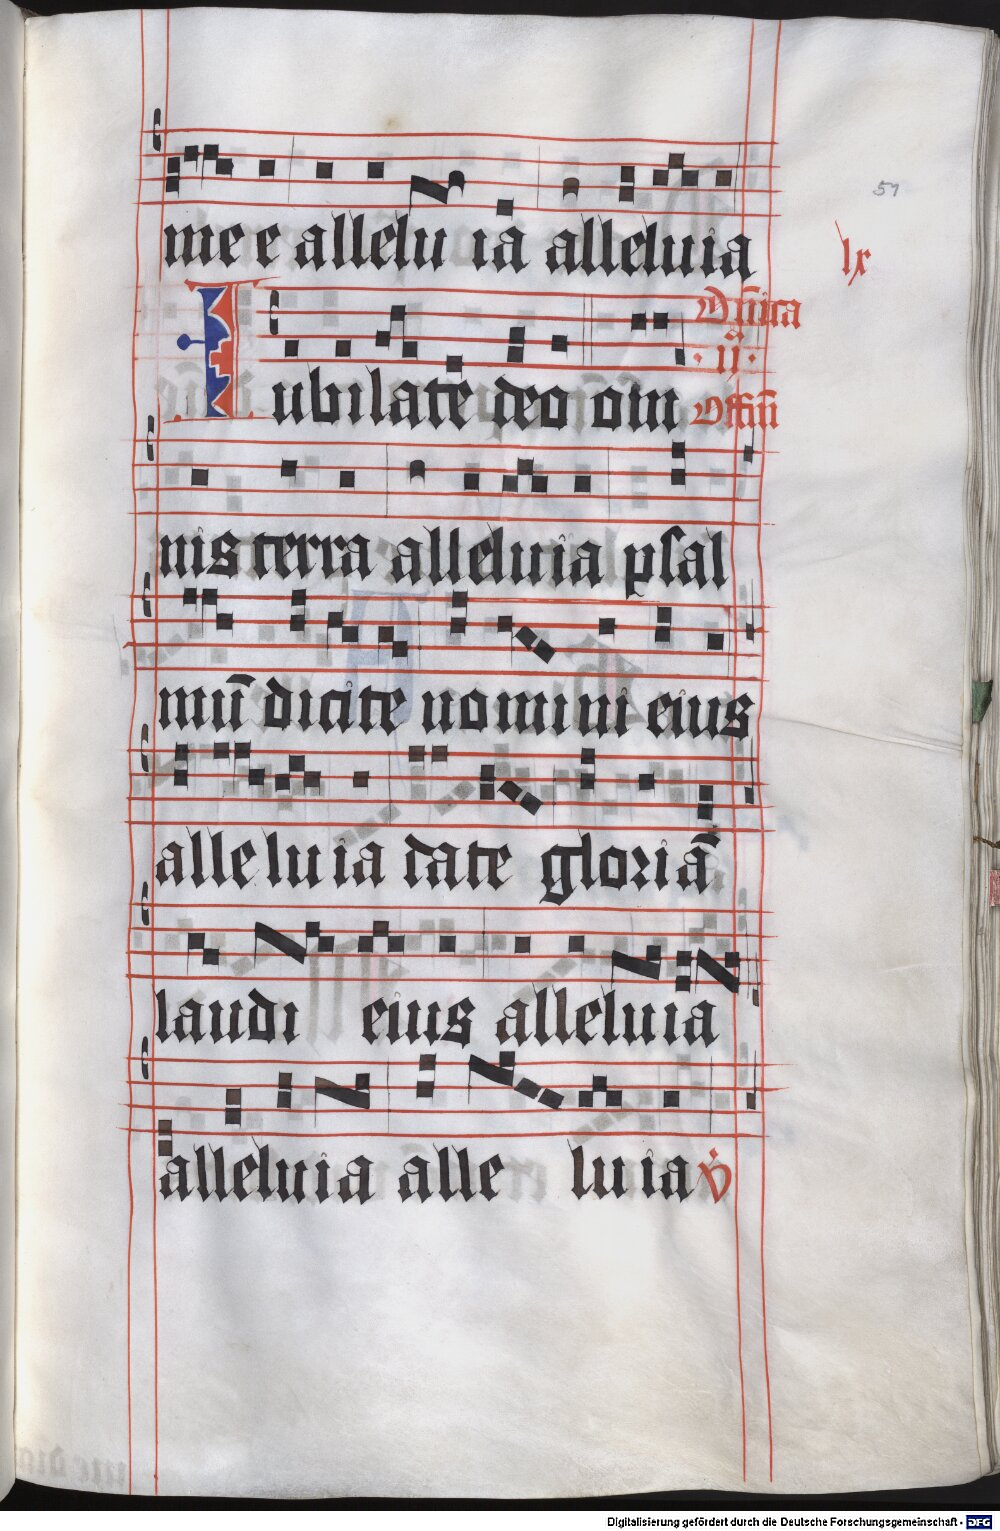 51
mee alleluia alleluia
lx
Dñica
·ij·
Iubilate deo om
Offm̄
nis terra alleluia psal
mū dicite nomini eius
alleluia date gloriā
laudi eius alleluia
alleluia alleluia v̇
Digitalisierung gefördert durch die Deutsche Forschungsgemeinschaft - DFG